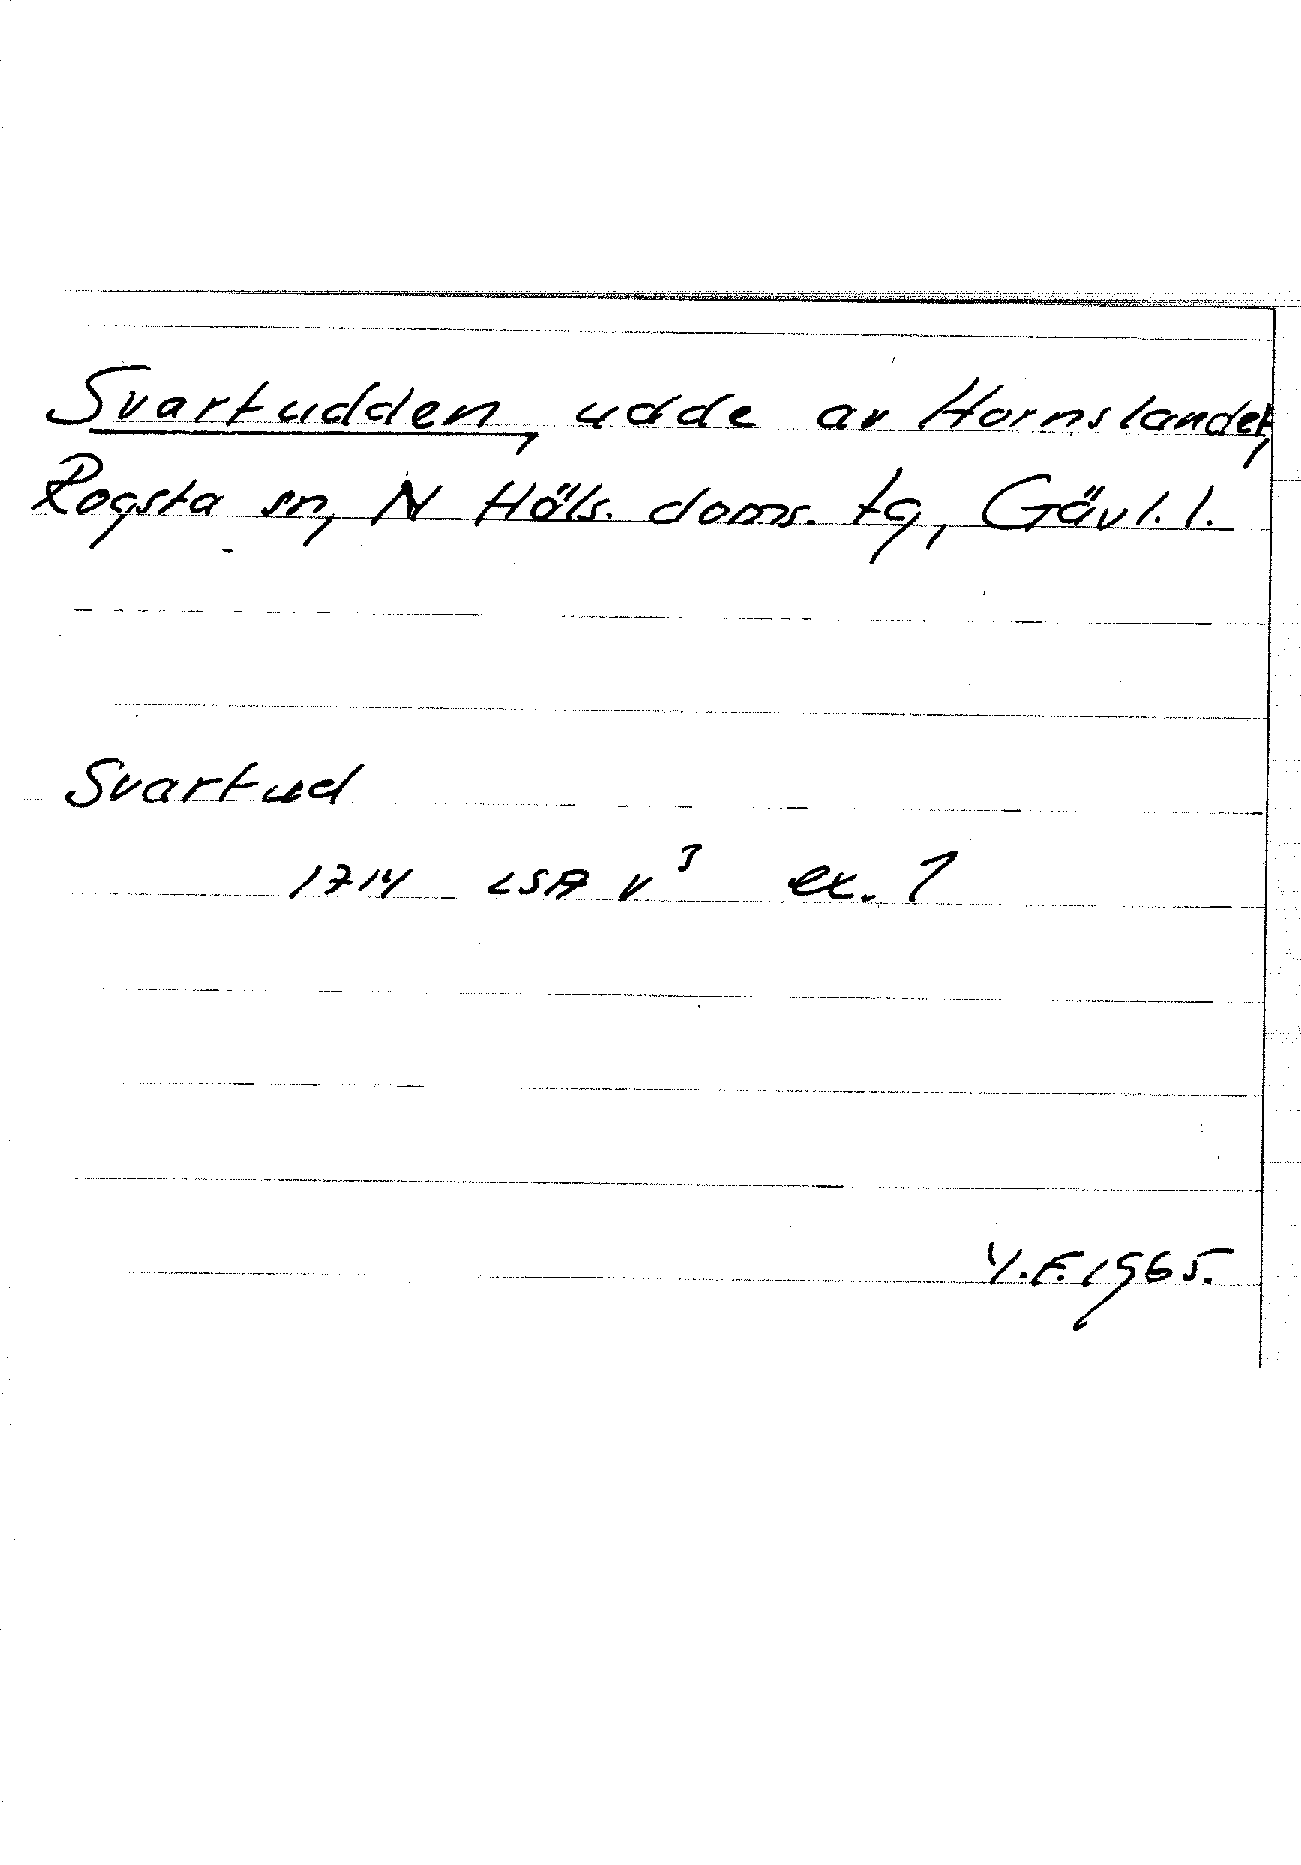 Svartudden, udde av Hornslandet,
Rogsta sn, N Häls. doms. tg, Gävl. l.
Svartud
1714 LSA V³ ex. 1
Y.F. 1965.